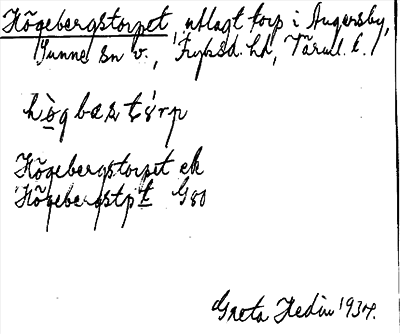 Högebergstorpet, utlagt torp i Ängersby,
Sunne sn v., Fryksd. hd, Värml. l.
hògbæstɔ̀rp
Högebergstorpet ek
Högebergstpt G80
Greta Hedin 1934.